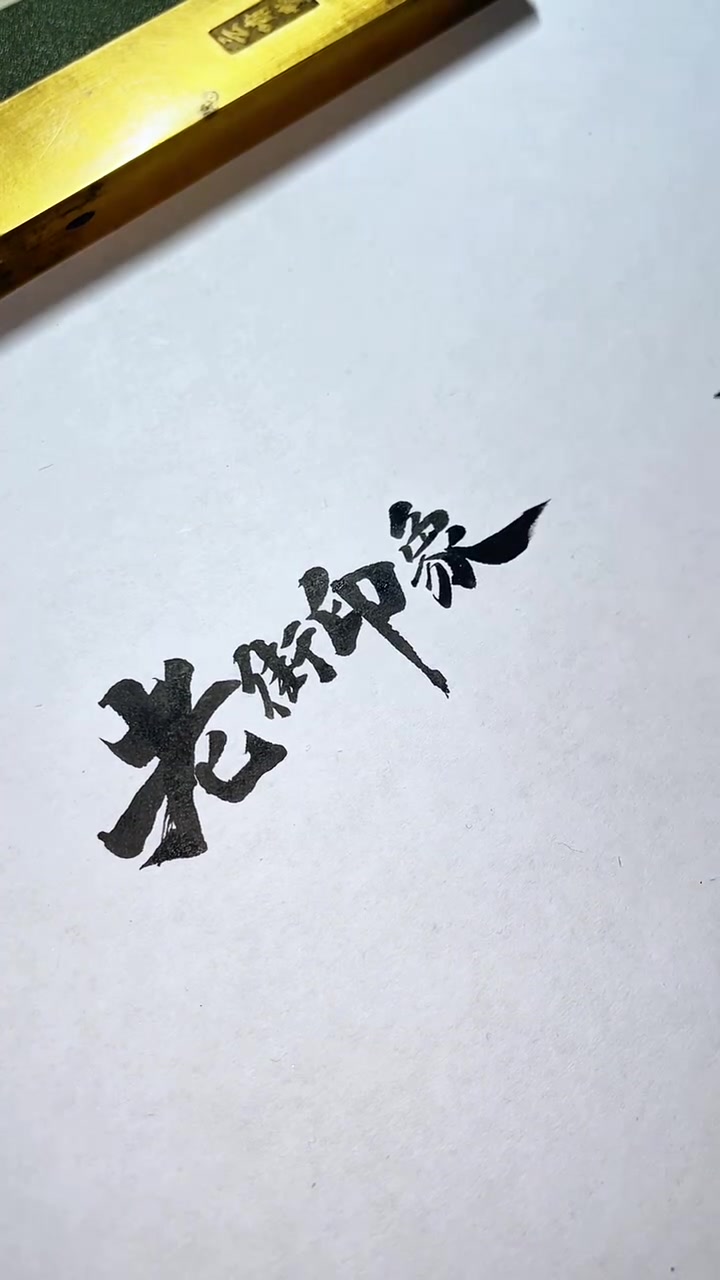 老街印象